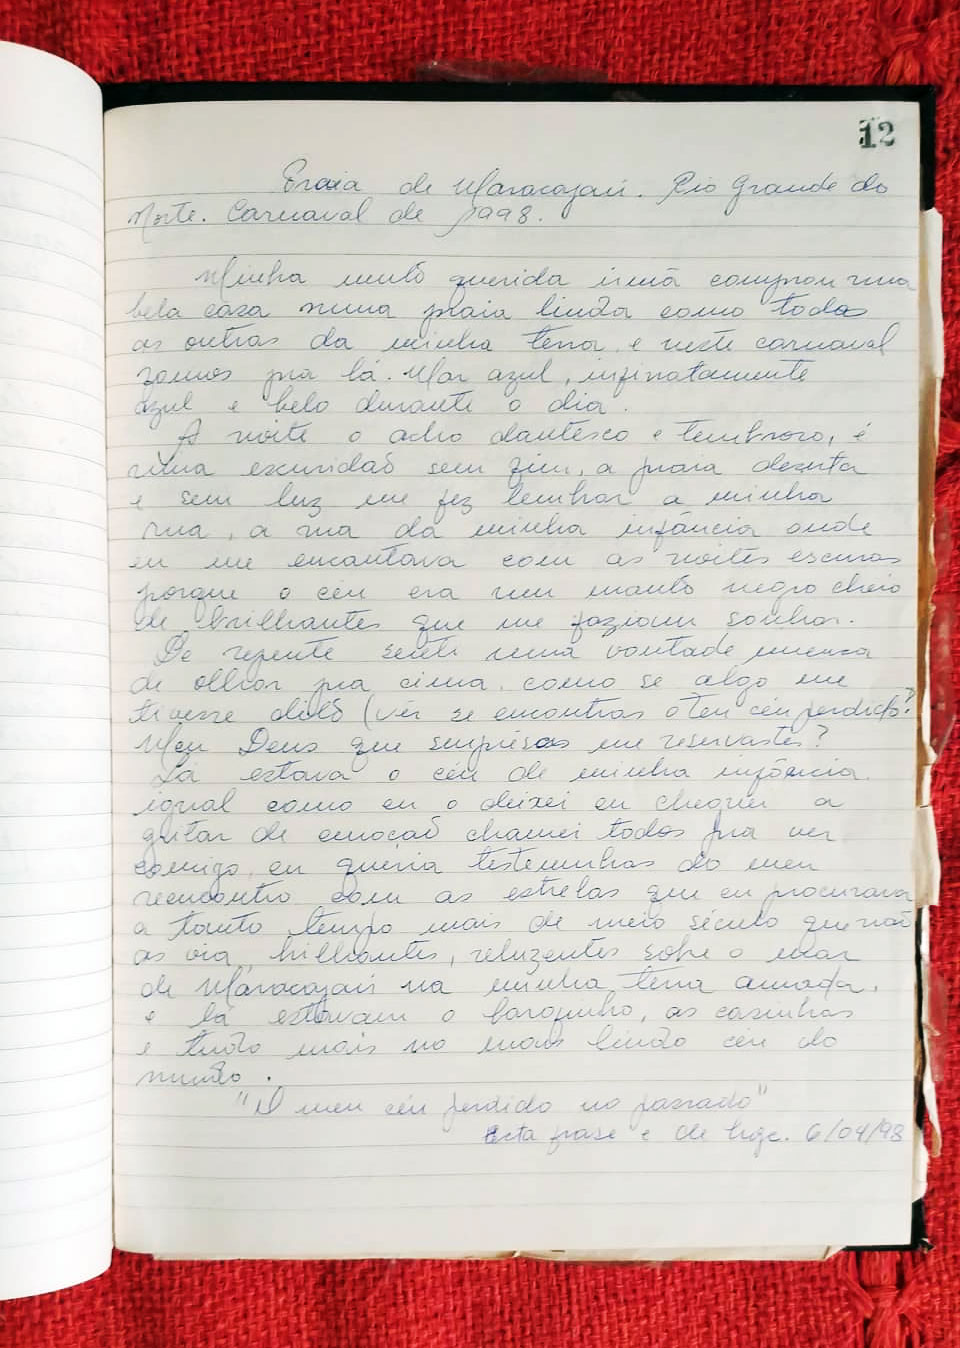 12
Praia de Maracajaú. Rio Grande do
Norte. Carnaval de 1998.
Minha muito querida irmã comprou uma
bela casa numa praia linda como todas
as outras da minha terra, e neste carnaval
vamos pra lá. Mar azul, infinatamente
azul e belo durante o dia.
A noite o acho dantesco e tembroso, é
uma escuridão sem fim, a praia deserta
e sem luz me fez lembrar a minha
rua, a rua da minha infância onde
eu me encantava com as noites escuras
porque o céu era um manto negro cheio
de brilhantes que me faziam sonhar.
De repente senti uma vontade imensa
de olhar pra cima, como se algo me
tivesse dito (vê se encontras o teu céu perdido?
Meu Deus que surpresas me reservastes?
Lá estava o céu de minha infância
igual como eu o deixei eu cheguei a
gritar de emoção chamei todos pra ver
comigo, eu queria testemunhas do meu
reencontro com as estrelas que eu procurava
a tanto tempo mais de meio século que não
as via, brilhantes, reluzentes sobre o mar
de Maracajaú na minha terra amada,
e lá estavam o barquinho, as casinhas
e tudo mais no mais lindo céu do
mundo.
"O meu céu perdido no passado"
Esta frase é de hoje. 6/04/98